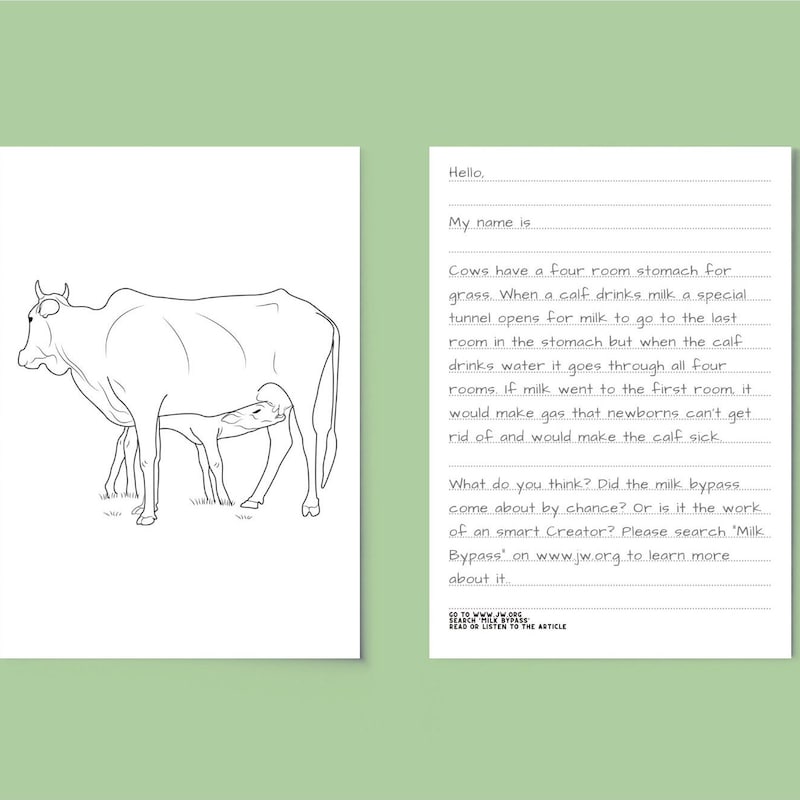 Hello,
My name is
Cows have a four room stomach for
grass. When a calf drinks milk a special
tunnel opens for milk to go to the last
room in the stomach but when the calf
drinks water it goes through all four
rooms. If milk went to the first room, it
would make gas that newborns can't get
rid of and would make the calf sick.
What do you think? Did the milk bypass
come about by chance? Or is it the work
of an smart Creator? Please search "Milk
Bypass" on www.jw.org to learn more
about it..
GO TO WWW.JW.ORG
SEARCH 'MILK BYPASS'
READ OR LISTEN TO THE ARTICLE